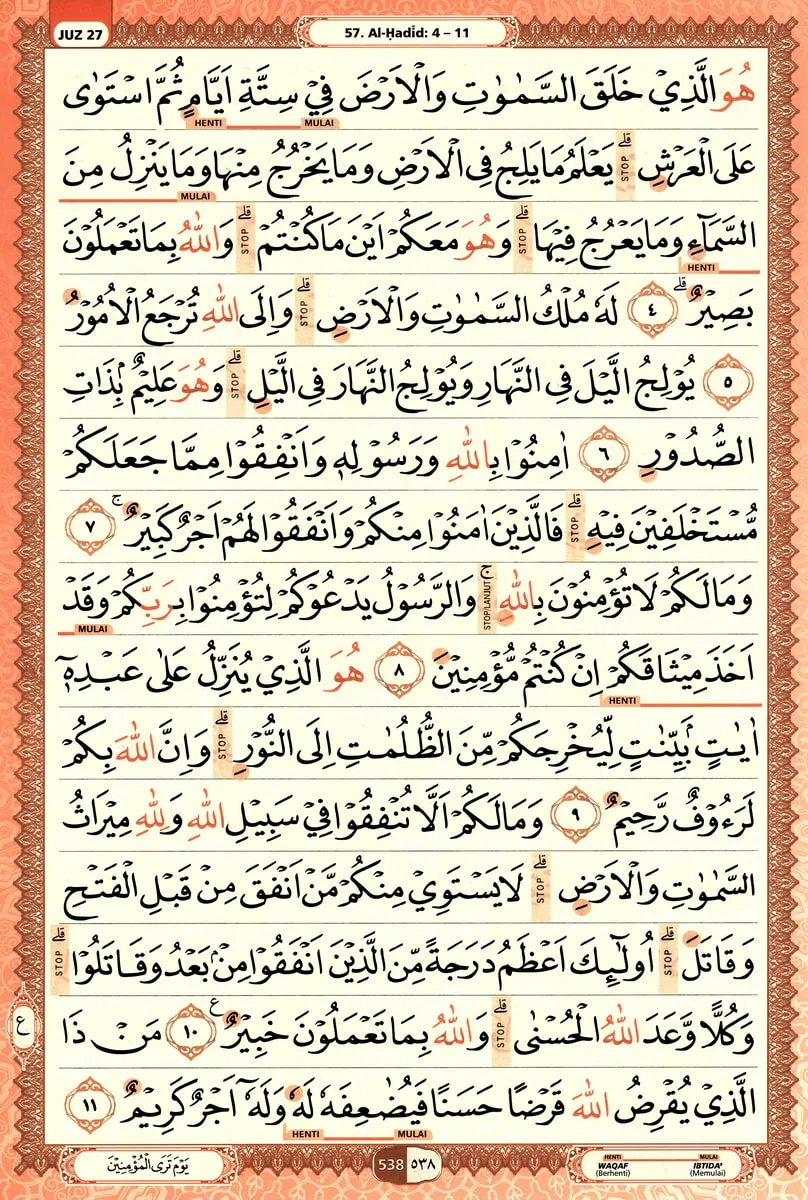 JUZ 27
57. Al-Ḥadīd: 4 – 11
هُوَ الَّذِيْ خَلَقَ السَّمٰوٰتِ وَالْاَرْضَ فِيْ سِتَّةِ اَيَّامٍ ثُمَّ اسْتَوٰى
MULAI HENTI
عَلَى الْعَرْشِۗ يَعْلَمُ مَا يَلِجُ فِى الْاَرْضِ وَمَا يَخْرُجُ مِنْهَا وَمَا يَنْزِلُ مِنَ
STOP
MULAI
السَّمَاۤءِ وَمَا يَعْرُجُ فِيْهَاۗ وَهُوَ مَعَكُمْ اَيْنَ مَا كُنْتُمْۗ وَاللّٰهُ بِمَا تَعْمَلُوْنَ
STOP STOP
HENTI
بَصِيْرٌۗ ٤ لَهٗ مُلْكُ السَّمٰوٰتِ وَالْاَرْضِۗ وَاِلَى اللّٰهِ تُرْجَعُ الْاُمُوْرُ
STOP
٥ يُوْلِجُ الَّيْلَ فِى النَّهَارِ وَيُوْلِجُ النَّهَارَ فِى الَّيْلِۗ وَهُوَ عَلِيْمٌۢ بِذَاتِ
STOP
الصُّدُوْرِ ٦ اٰمِنُوْا بِاللّٰهِ وَرَسُوْلِهٖ وَاَنْفِقُوْا مِمَّا جَعَلَكُمْ
مُّسْتَخْلَفِيْنَ فِيْهِۗ فَالَّذِيْنَ اٰمَنُوْا مِنْكُمْ وَاَنْفَقُوْا لَهُمْ اَجْرٌ كَبِيْرٌۚ ٧
STOP
وَمَا لَكُمْ لَا تُؤْمِنُوْنَ بِاللّٰهِۚ وَالرَّسُوْلُ يَدْعُوْكُمْ لِتُؤْمِنُوْا بِرَبِّكُمْ وَقَدْ
STOP/LANJUT
MULAI
اَخَذَ مِيْثَاقَكُمْ اِنْ كُنْتُمْ مُّؤْمِنِيْنَ ٨ هُوَ الَّذِيْ يُنَزِّلُ عَلٰى عَبْدِهٖٓ
HENTI
اٰيٰتٍۢ بَيِّنٰتٍ لِّيُخْرِجَكُمْ مِّنَ الظُّلُمٰتِ اِلَى النُّوْرِۗ وَاِنَّ اللّٰهَ بِكُمْ
STOP
لَرَءُوْفٌ رَّحِيْمٌ ٩ وَمَا لَكُمْ اَلَّا تُنْفِقُوْا فِيْ سَبِيْلِ اللّٰهِ وَلِلّٰهِ مِيْرَاثُ
السَّمٰوٰتِ وَالْاَرْضِۗ لَا يَسْتَوِيْ مِنْكُمْ مَّنْ اَنْفَقَ مِنْ قَبْلِ الْفَتْحِ
STOP
وَقَاتَلَۗ اُولٰۤىِٕكَ اَعْظَمُ دَرَجَةً مِّنَ الَّذِيْنَ اَنْفَقُوْا مِنْۢ بَعْدُ وَقَاتَلُوْاۗ
STOP STOP
وَكُلًّا وَّعَدَ اللّٰهُ الْحُسْنٰىۗ وَاللّٰهُ بِمَا تَعْمَلُوْنَ خَبِيْرٌ ࣖ ١٠ مَنْ ذَا
STOP
ع
الَّذِيْ يُقْرِضُ اللّٰهَ قَرْضًا حَسَنًا فَيُضٰعِفَهٗ لَهٗ وَلَهٗٓ اَجْرٌ كَرِيْمٌ ١١
MULAI HENTI
يَوْمَ تَرَى الْمُؤْمِنِيْنَ
538 ٥٣٨
HENTI WAQAF (Berhenti)
MULAI IBTIDA' (Memulai)